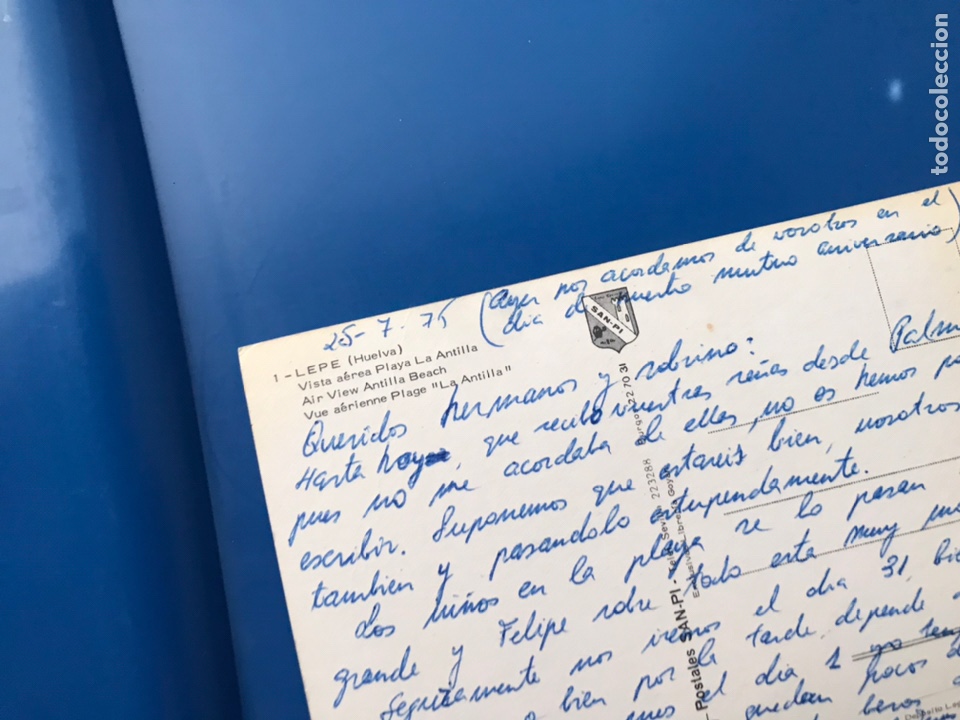 todocoleccion
25-7-75 (Ayer nos acordamos de vosotros en el
dia de nuestro mutuo aniversario)
SAN-PI
1 - LEPE (Huelva)
Vista aérea Playa La Antilla
Air View Antilla Beach
Vue aérienne Plage "La Antilla"
Queridos hermanos y sobrino:
Hasta hoy, que recibo vuestras señas desde Palm
pues no me acordaba de ellas, no os hemos po
escribir. Suponemos que estareis bien, nosotros
tambien y pasandolo estupendamente.
Los niños en la playa se lo pasan
grande y Felipe sobre todo esta muy mo
Seguramente nos iremos el dia 31, bie
o bien por la tarde, depende d
el dia 1 ya ten
quedan pocos d
besos
Postales SAN-PI - Sevilla 223288 Burgos 227031
Exclusivas Librería Goya
Depósito Leg